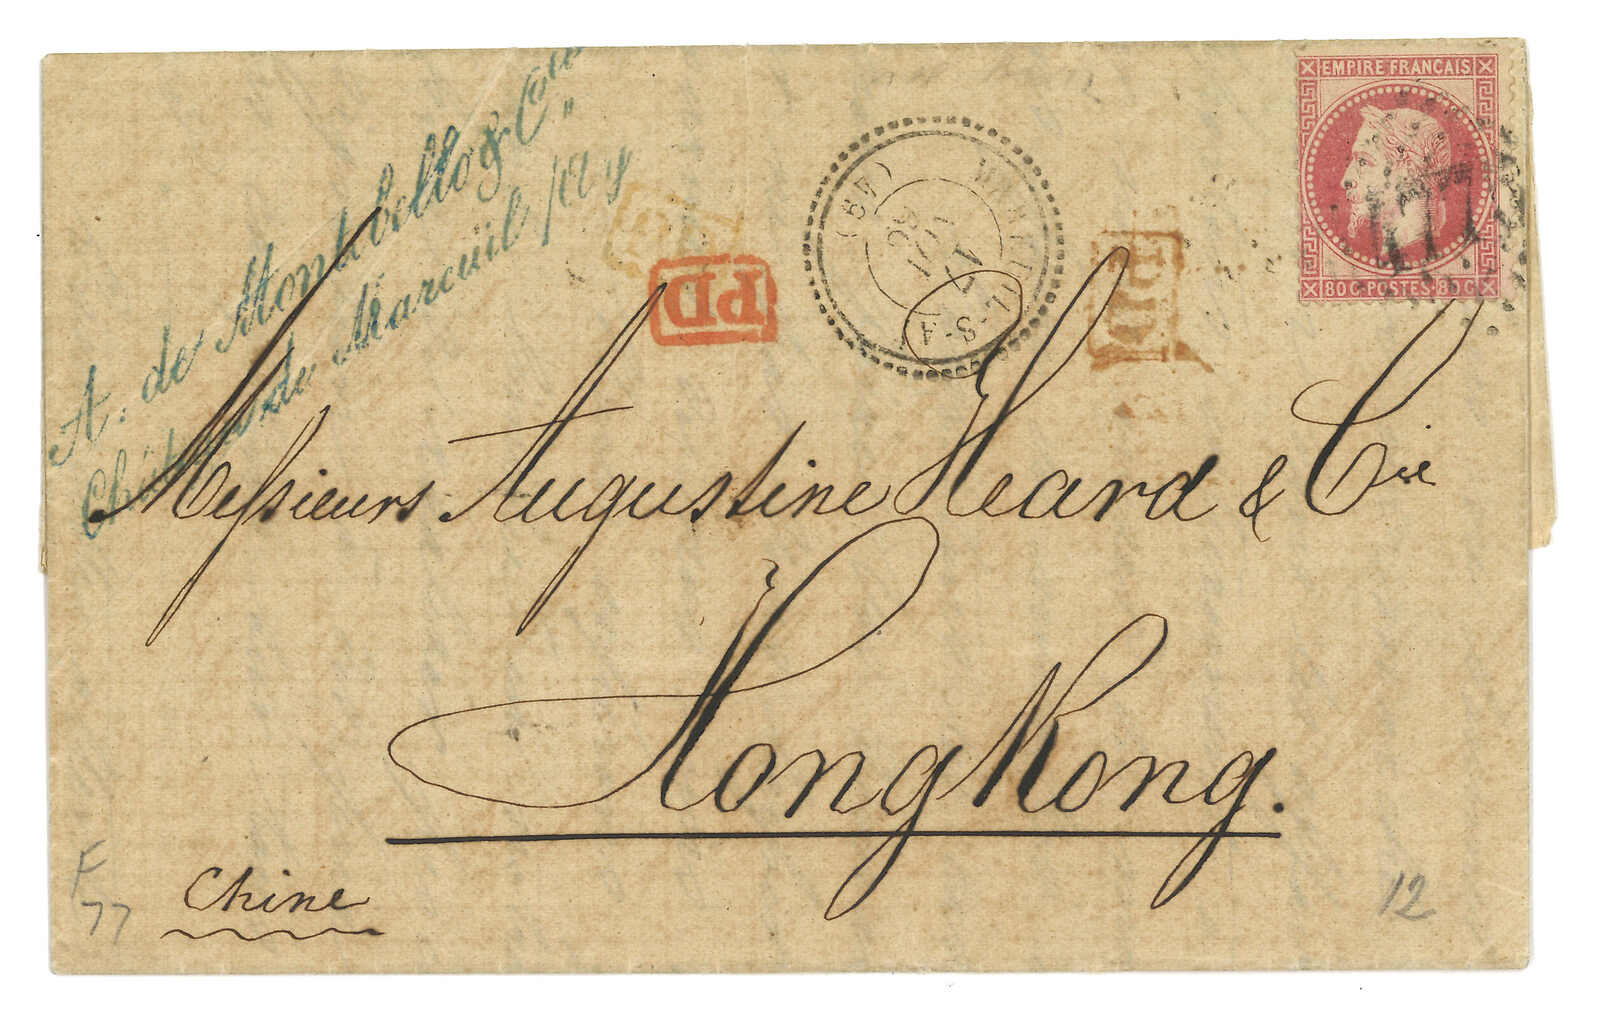 A. de Montebello & Cie
Château de Mareuil s/Ay
EMPIRE FRANCAIS
80 C POSTES 80 C
PD
PD
(49)
17
Messieurs Augustine Heard & Cie
HongKong.
Chine
F
77
12